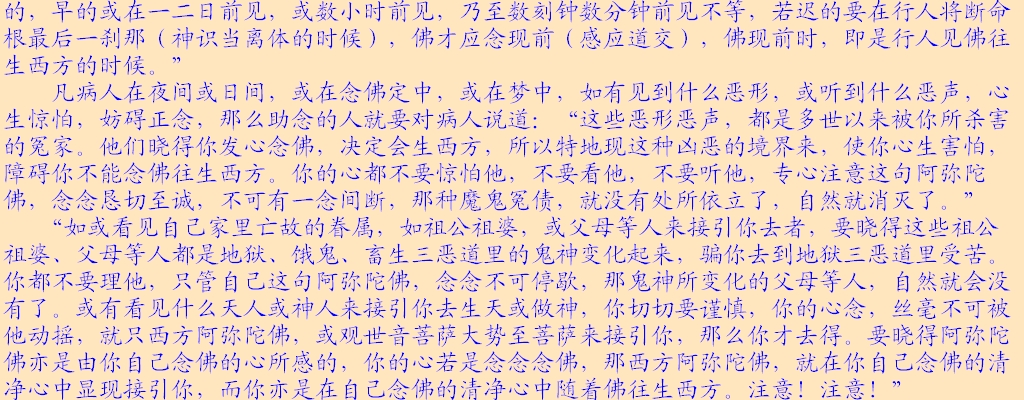 的，早的或在一二日前见，或数小时前见，乃至数刻钟数分钟前见不等，若迟的要在行人将断命
根最后一刹那（神识当离体的时候），佛才应念现前（感应道交），佛现前时，即是行人见佛往
生西方的时候。”
凡病人在夜间或日间，或在念佛定中，或在梦中，如有见到什么恶形，或听到什么恶声，心
生惊怕，妨碍正念，那么助念的人就要对病人说道：“这些恶形恶声，都是多世以来被你所杀害
的冤家。他们晓得你发心念佛，决定会生西方，所以特地现这种凶恶的境界来，使你心生害怕，
障碍你不能念佛往生西方。你的心都不要惊怕他，不要看他，不要听他，专心注意这句阿弥陀
佛，念念恳切至诚，不可有一念间断，那种魔鬼冤债，就没有处所依立了，自然就消灭了。”
“如或看见自己家里亡故的眷属，如祖公祖婆，或父母等人来接引你去者，要晓得这些祖公
祖婆、父母等人都是地狱、饿鬼、畜生三恶道里的鬼神变化起来，骗你去到地狱三恶道里受苦。
你都不要理他，只管自己这句阿弥陀佛，念念不可停歇，那鬼神所变化的父母等人，自然就会没
有了。或有看见什么天人或神人来接引你去生天或做神，你切切要谨慎，你的心念，丝毫不可被
他动摇，就只西方阿弥陀佛，或观世音菩萨大势至菩萨来接引你，那么你才去得。要晓得阿弥陀
佛亦是由你自己念佛的心所感的，你的心若是念念念佛，那西方阿弥陀佛，就在你自己念佛的清
净心中显现接引你，而你亦是在自己念佛的清净心中随着佛往生西方。注意！注意！”